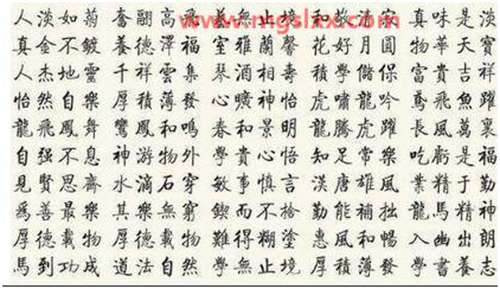 www.mgslxx.com
人淡如菊 奮翮高飛 藝無止境 和敬清寂 真味是淡
真金不鍍 養德澤福 室雅蘭馨 花好月圓 物華天寶
人杰地靈 千祥雲集 琴酒相壽 積學儲 富貴吉祥
怡然自樂 厚積薄發 心曠神怡 虎嘯龍吟 鳶飛魚躍
龍飛鳳舞 鸞鳳和鳴 春和景明 龍騰虎躍 長風萬裏
自强不息 神游物外 和貴心悟 知足常樂 吃虧是福
見賢思齊 水滴石穿 敏事慎言 漢唐雄風 業精于勤
爲善最樂 其樂無窮 鍥而不捨 勤能補拙 龍馬精神
厚德載物 厚德載物 難得糊塗 惠風和暢 入幽出朗
馬到功成 道法自然 學無止境 厚積薄發 學書養志